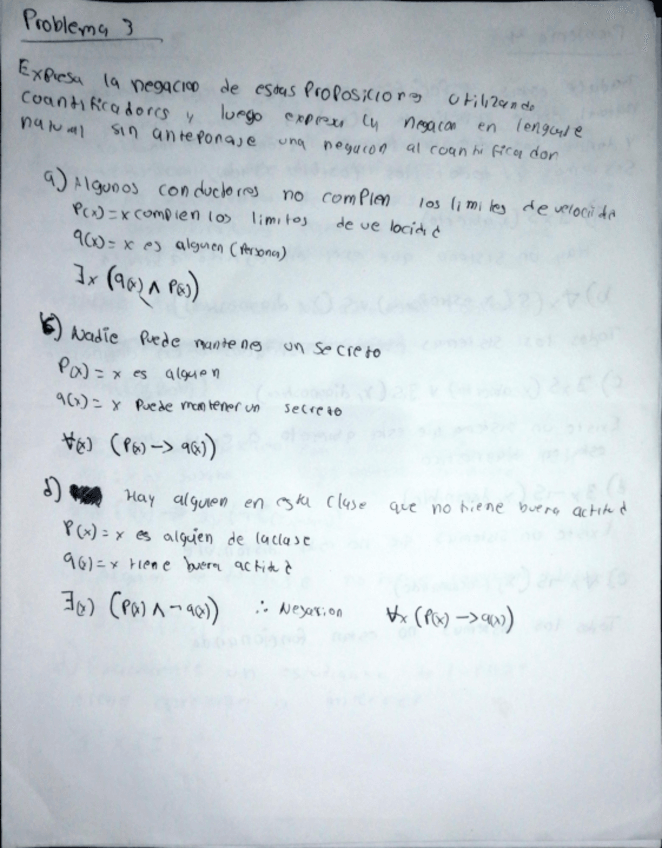 Problema 3
Expresa la negacion de estas Proposiciones Utilizando
cuantificadores y luego exprese la negacion en lenguaje
natural sin anteponarse una negacion al cuantificador
a) Algunos conductores no complen los limites de velocidad
P(x) = x complen los limites de velocidad
q(x) = x es alguien (Persona)
∃x (q(x) ∧ P(x))
b) Nadie Puede mantener un secreto
P(x) = x es alguien
q(x) = x Puede mantener un secreto
∀(x) (P(x) → q(x))
d) Hay alguien en esta clase que no tiene buena actitud
P(x) = x es alguien de la clase
q(x) = x tiene buena actitud
∃(x) (P(x) ∧ ¬q(x)) ∴ Negacion ∀x (P(x) → q(x))